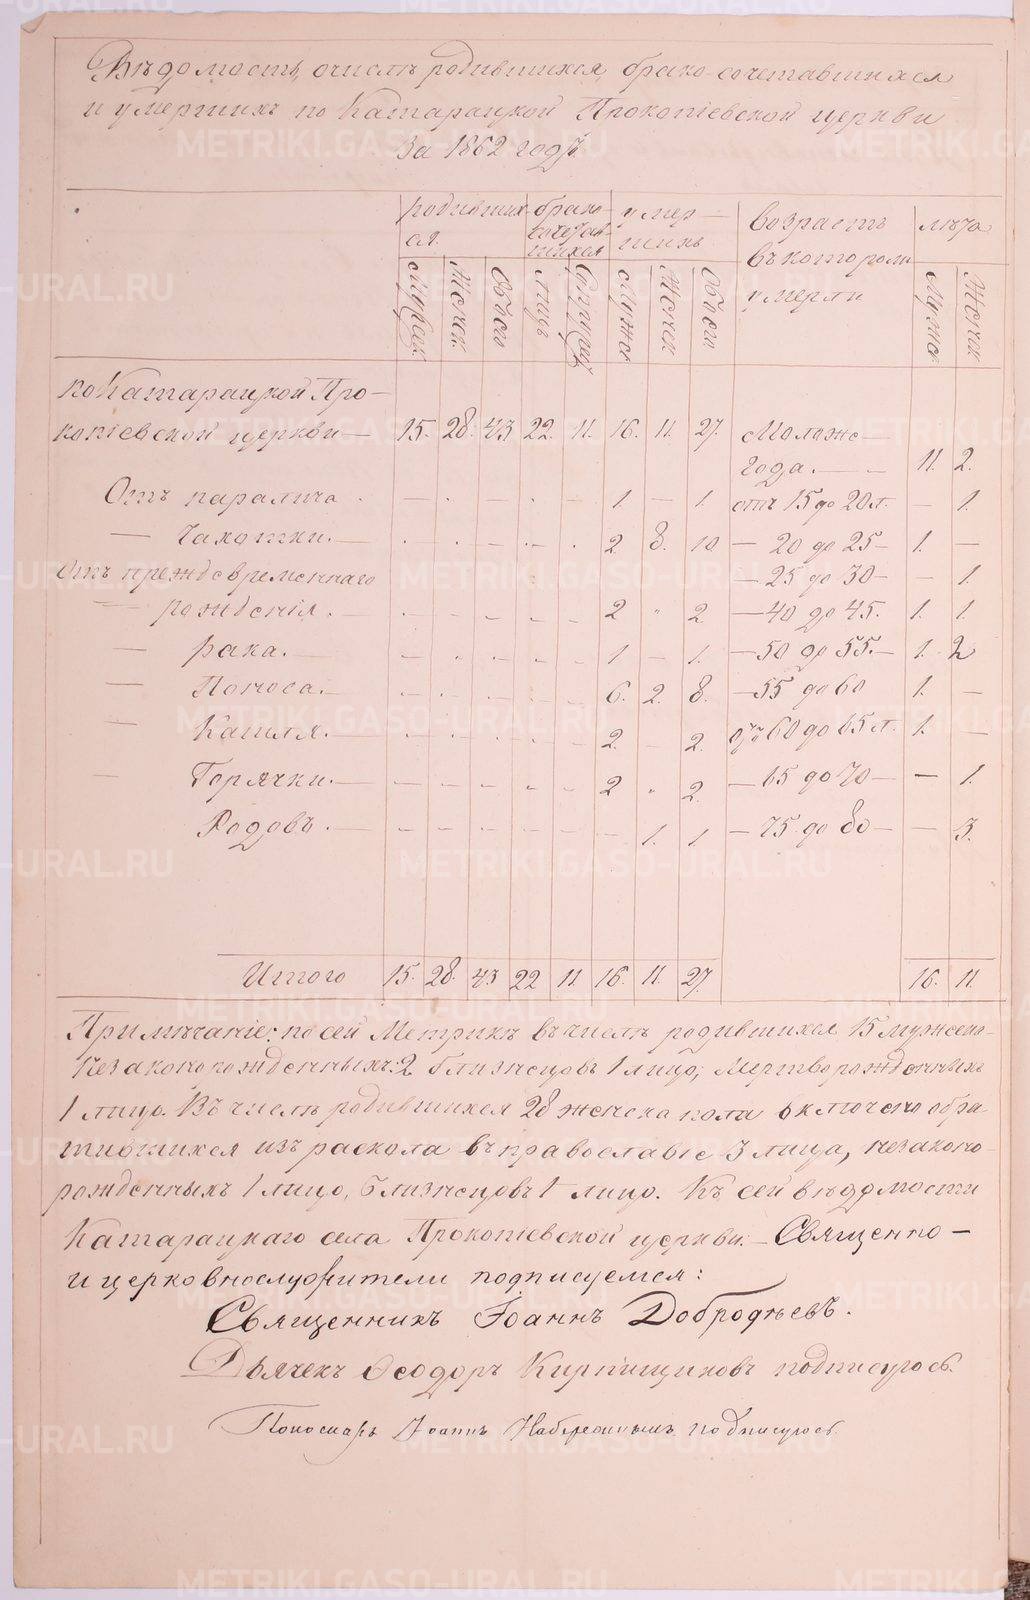 Вѣдомость, о числѣ родившихся, брако-сочетавшихся
и умершихъ по Катарацкой Прокопіевской церкви
За 1862 годъ.
родившихся. брако-сочетавшихся умершихъ возрастъ въ которомъ умерли лѣта
Мужеск. Женск. Обоего лицъ Супруж. Мужес. Женск. Обоего Мужес. Женск.
по Катарацкой Про-
копіевской церкви — 15. 28. 43 22. 11. 16. 11. 27. Моложе
года. — 11. 2.
Отъ паралича . — . — . — 1. — 1. отъ 15 до 20 л. — 1.
— Чахотки. — 2 8. 10 — 20 до 25 — 1. —
Отъ преждевременнаго — 25 до 30 — — 1.
— рожденія. 2 " 2 — 40 до 45. 1. 1.
— рака. 1 — 1. — 50 до 55. — 1. 2
— Поноса. — 6. 2. 8. — 55 до 60 1. —
— Кашля. 2. — 2. отъ 60 до 65 л. 1. —
— Горячки. — 2 " 2. — 65 до 70 — — 1.
Родовъ. — 1. 1 — 75 до 80 — — 3.
Итого 15. 28. 43 22 11 16. 11. 27. 16. 11
Примѣчаніе: по сей Метрикѣ въ числѣ родившихся 15 мужеска-
незаконорожденныхъ: 2 близнецовъ 1 лицо; мертворожденныхъ
1 лицо. Въ числѣ родившихся 28 женска пола включено обра-
тившихся изъ раскола въ православіе 3 лица, незаконо-
рожденныхъ 1 лицо, близнецовъ 1 лицо. Къ сей вѣдомости
Катарацкаго села Прокопіевской церкви — Священно —
и церковнослужители подписуемся:
Священникъ Іоаннъ Добродѣевъ.
Дьячекъ Ѳеодоръ Кирпищиковъ подписуюсь.
Пономарь Іоаннъ подписуюсь
METRIKI.GASO-URAL.RU